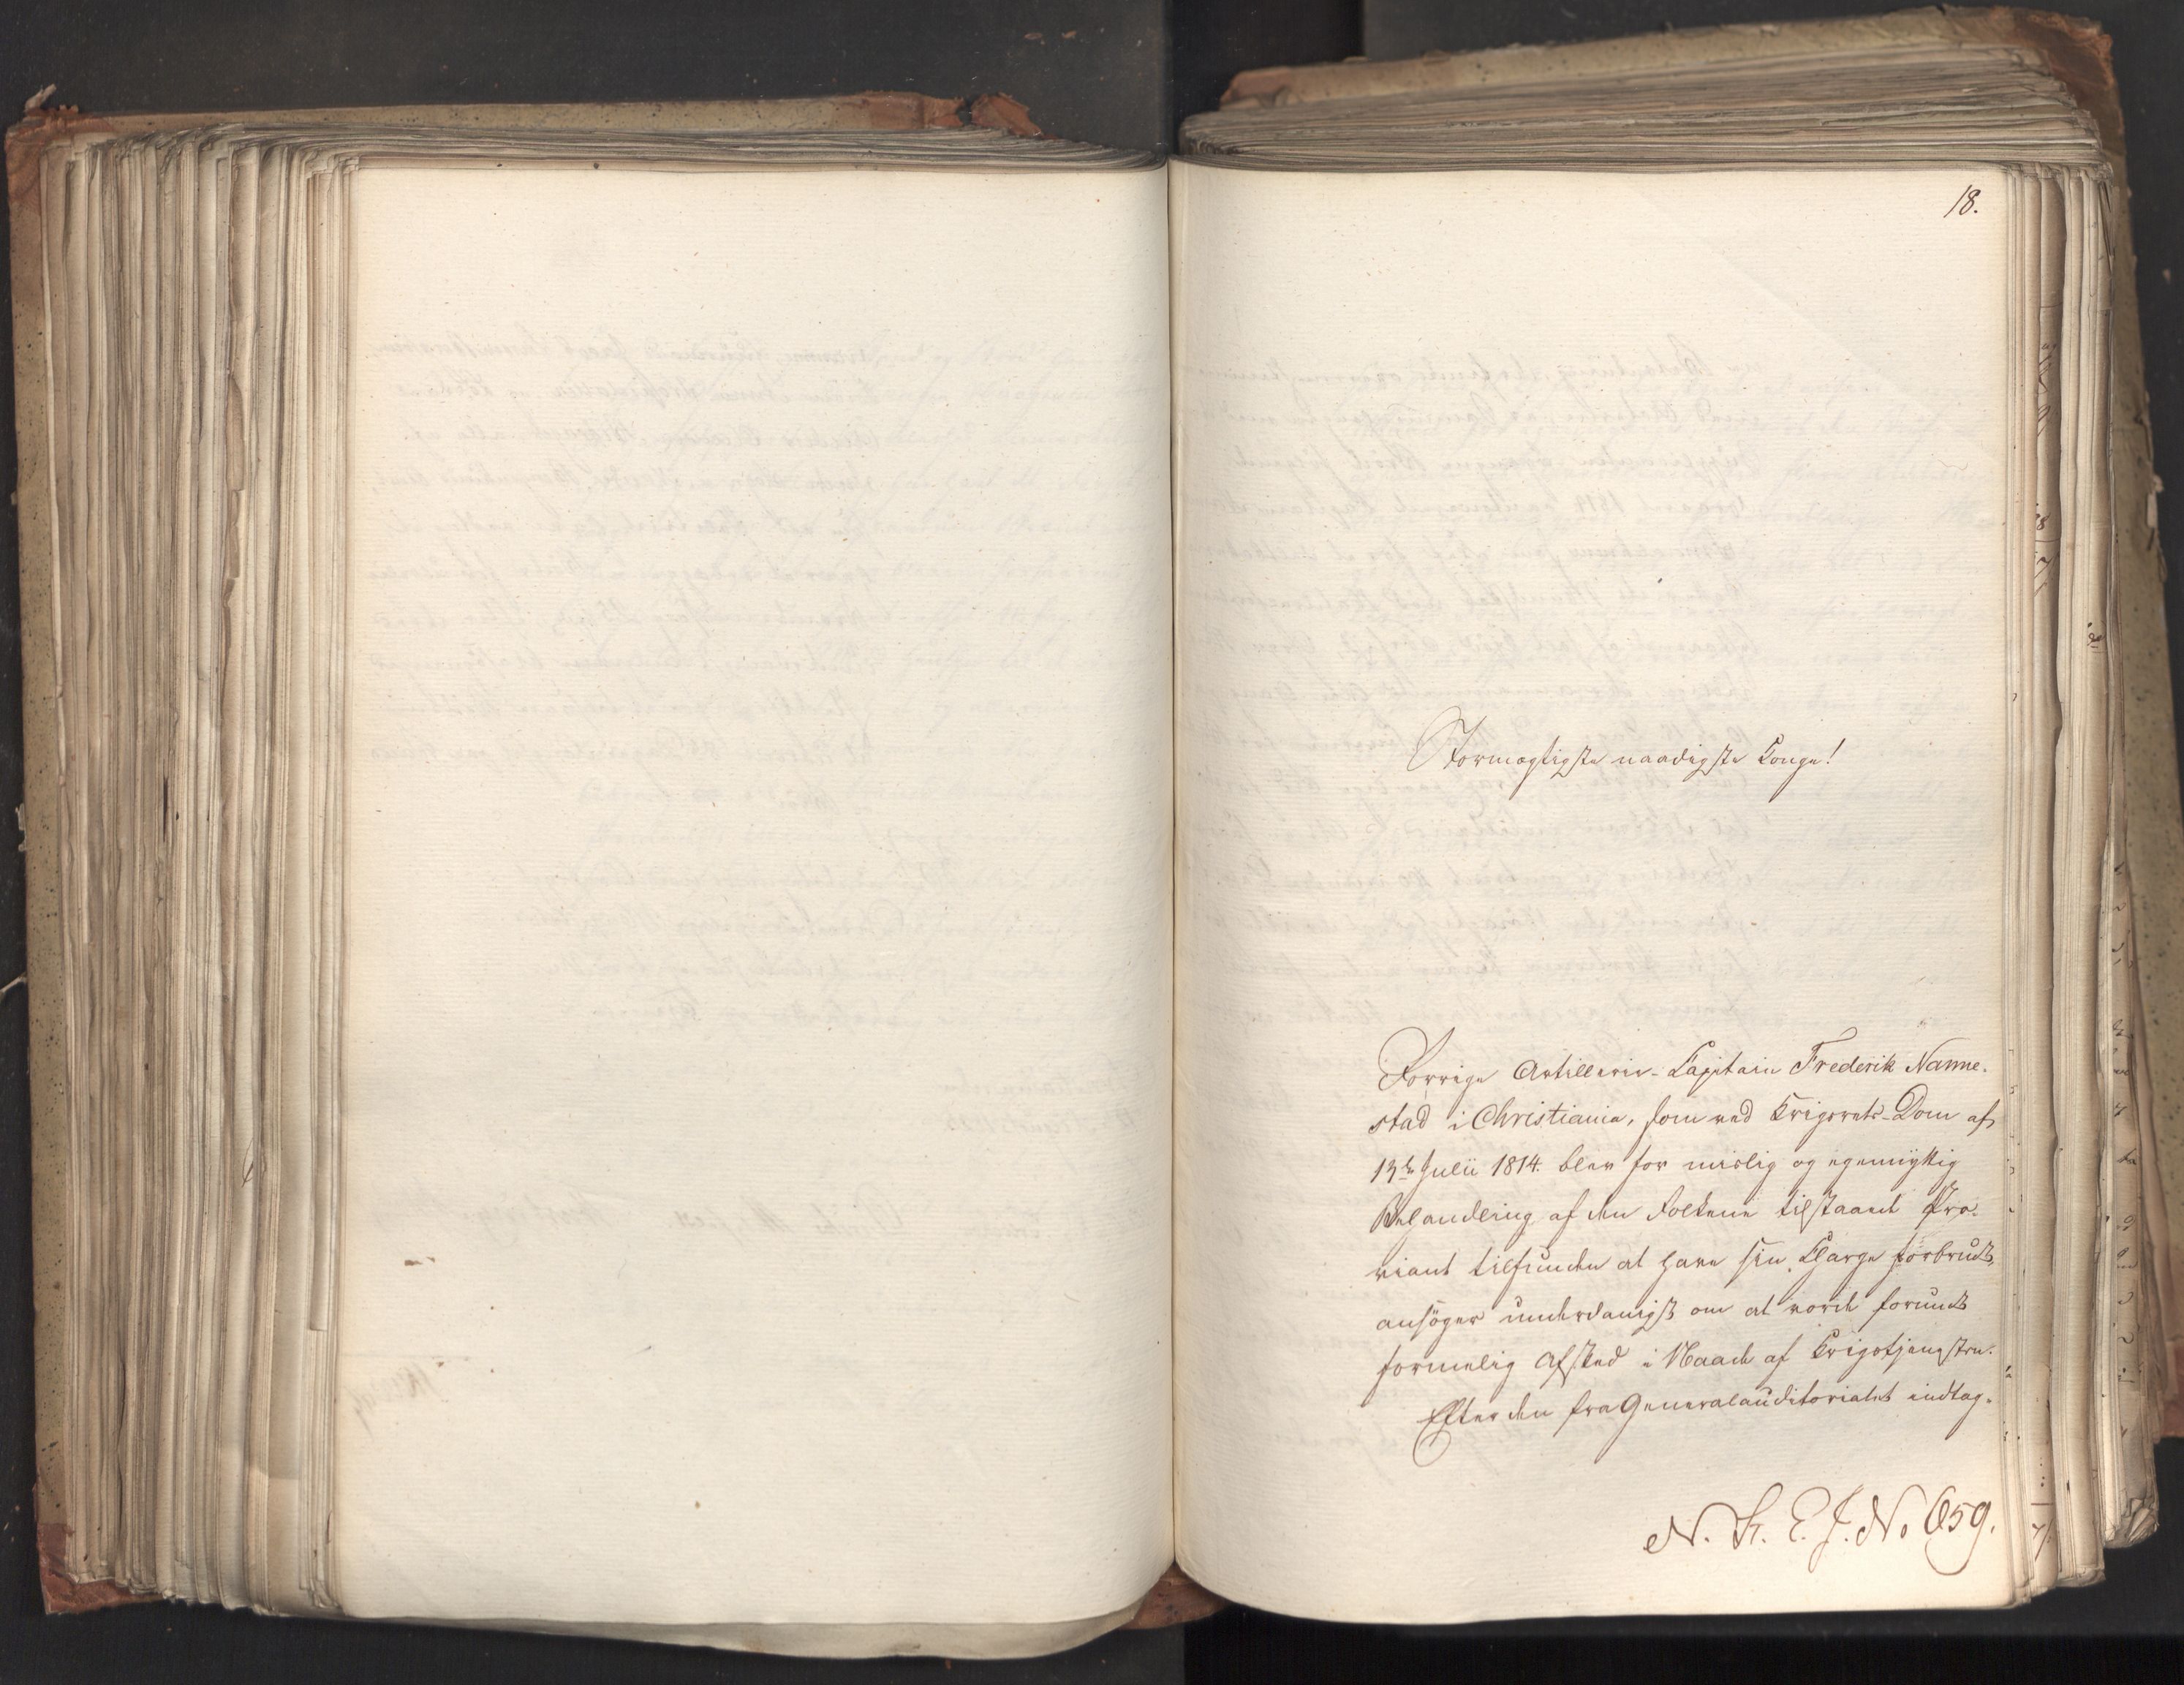 18.
Stormægtigste naadigste Konge!
Forrige Artillerie-Capitain Frederik Nanne-
stad i Christiania, som ved Krigsrets-Dom af
13de Julii 1814 blev for mislig og egennyttig
Behandling af den Folkene tilstaaed Pro-
viant tilfunden at have sin Charge forbrudt,
ansøger underdanigst om at vorde forundt
formelig Afsked i Naade af Krigstjenesten.
Efter den fra Generalauditoriatet indtag-
N. K. E. J. No 659.